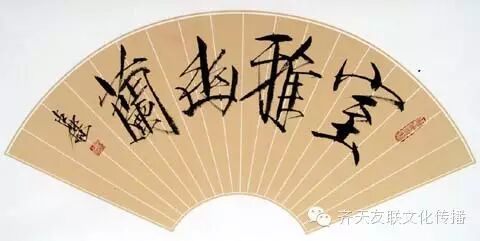 室雅幽蘭
齐天友联文化传播